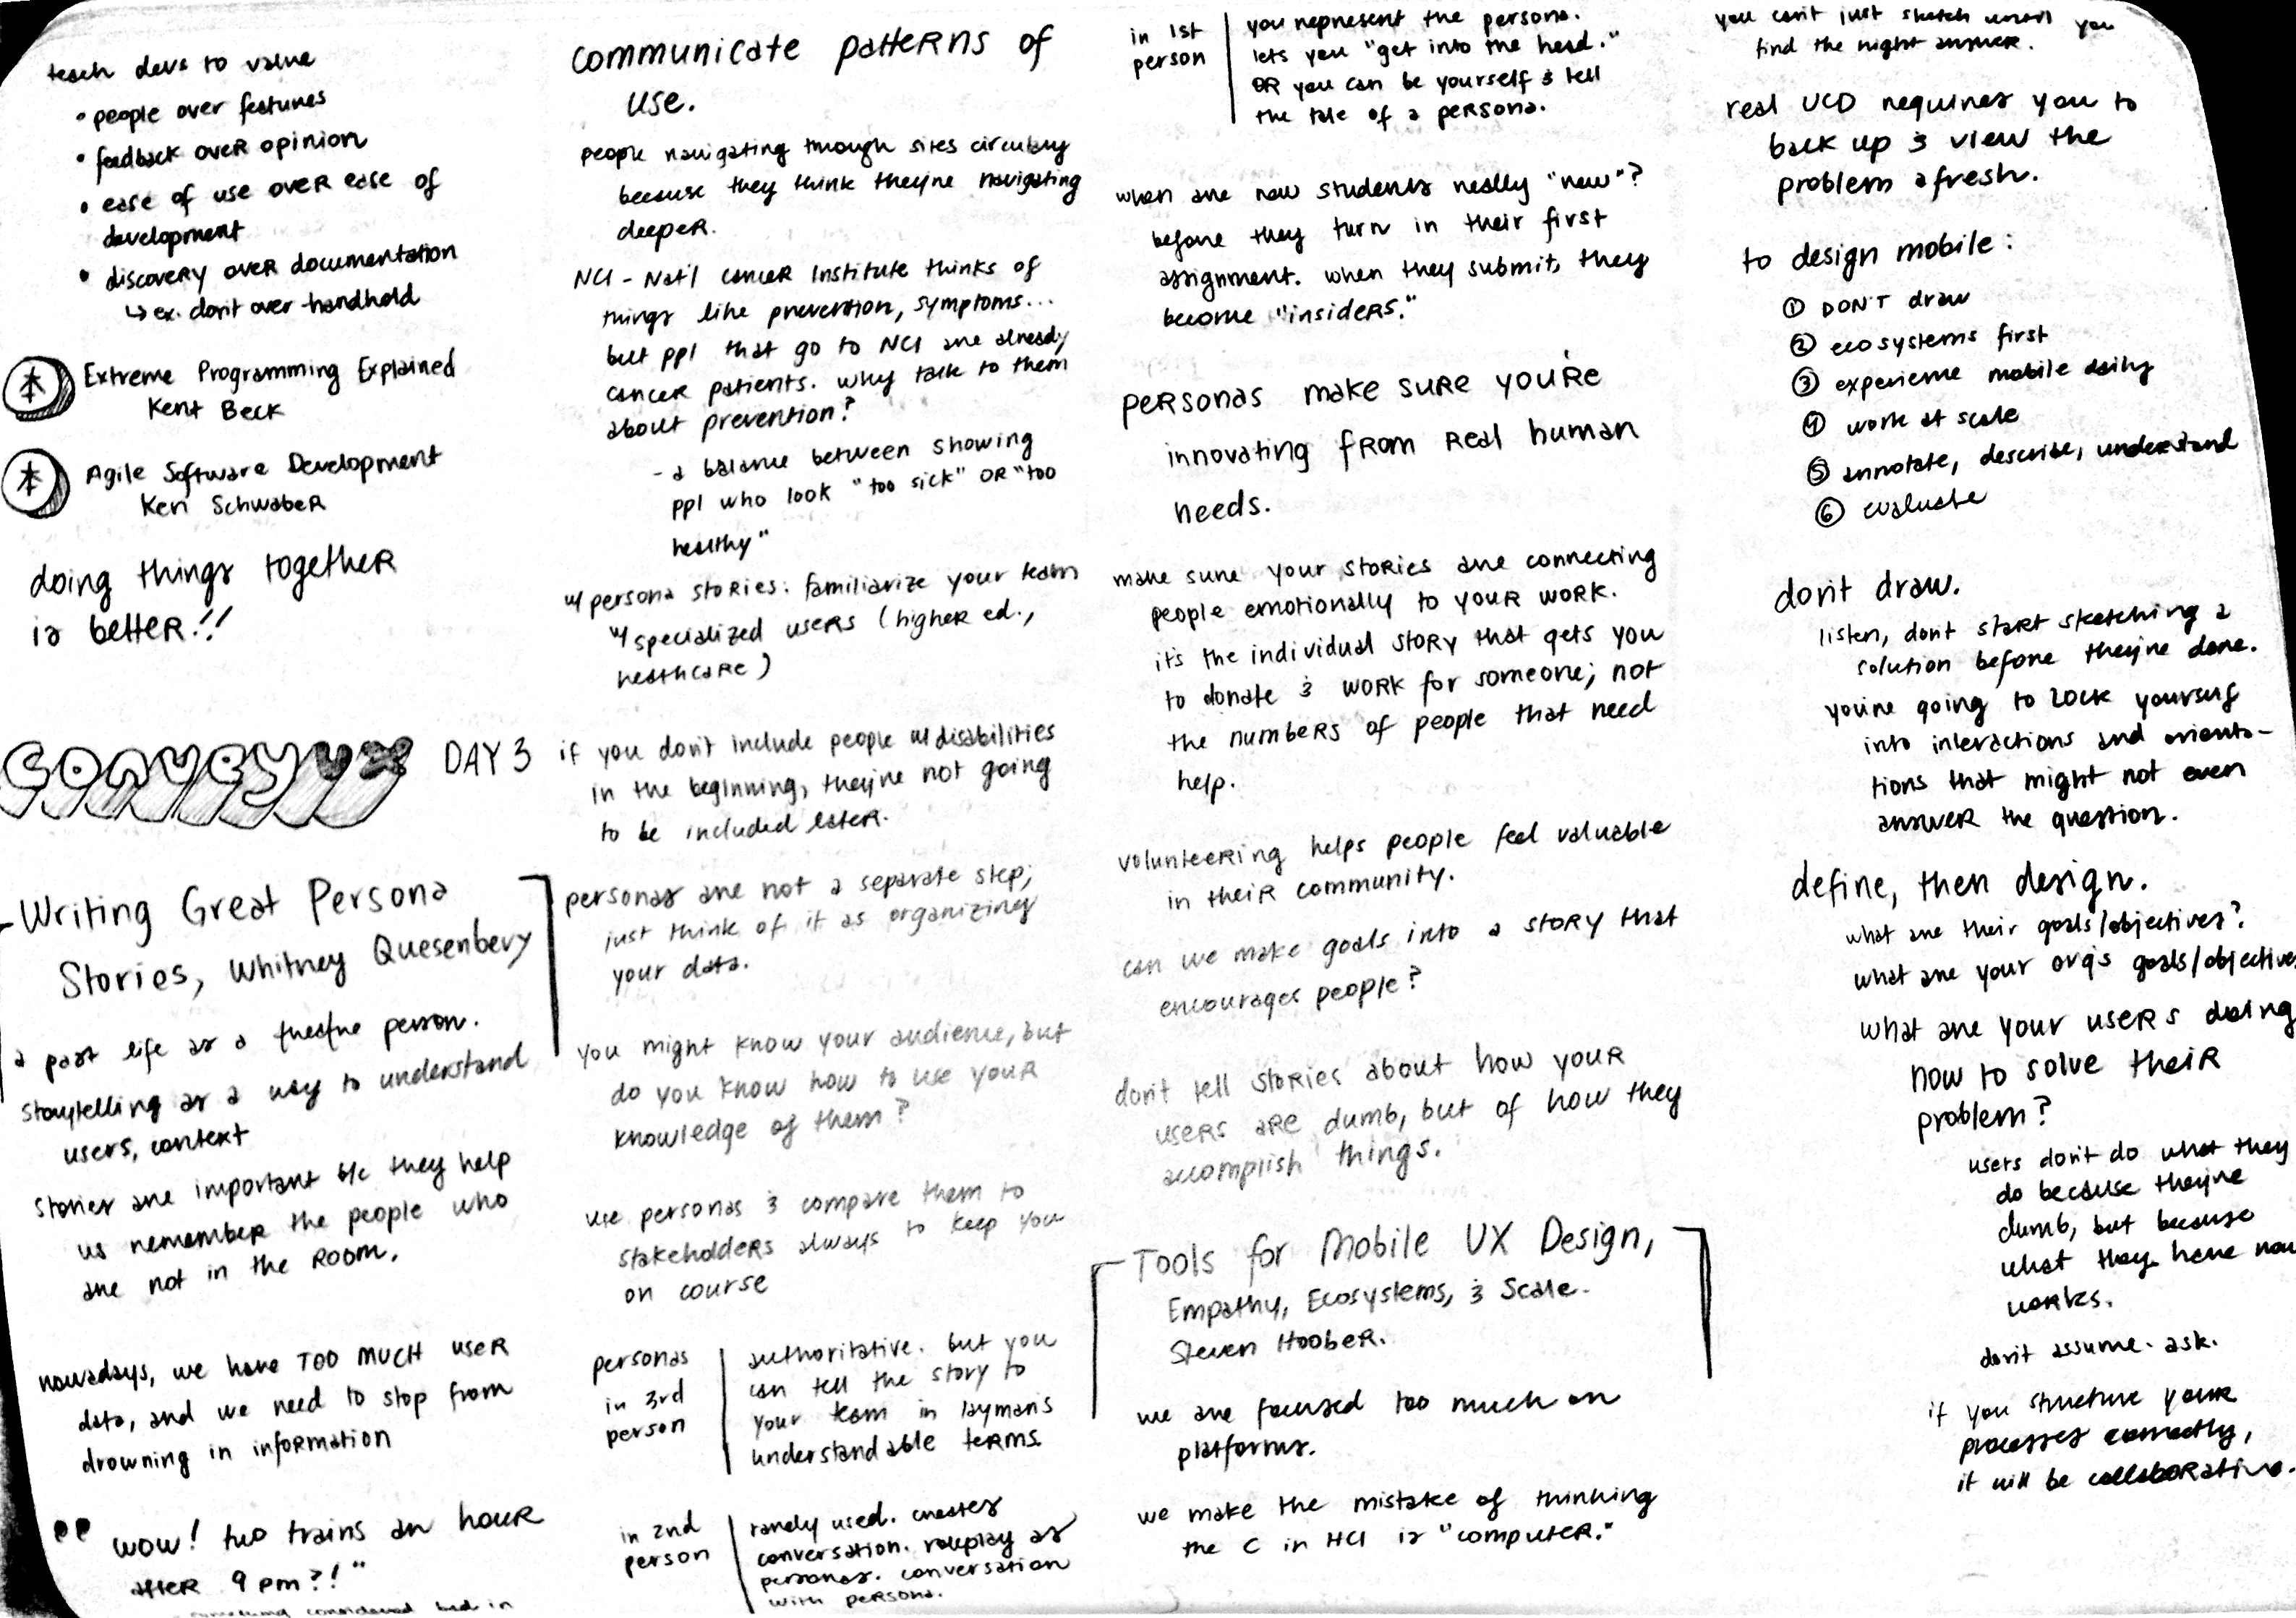 teach devs to value
• people over features
• feedback over opinion
• ease of use over ease of
development
• discovery over documentation
↳ ex. don't over-handhold
Extreme Programming Explained
Kent Beck
Agile Software Development
Ken Schwaber
doing things together
is better!!
CONVEY UX DAY 3
Writing Great Persona
Stories, Whitney Quesenbery
a past life as a theatre person.
storytelling as a way to understand
users, context
stories are important b/c they help
us remember the people who
are not in the room.
nowadays, we have TOO MUCH user
data, and we need to stop from
drowning in information
"wow! two trains an hour
after 9 pm?!"
something considered bad in
communicate patterns of
use.
people navigating through sites circularly
because they think they're navigating
deeper.
NCI - Nat'l Cancer Institute thinks of
things like prevention, symptoms...
but ppl that go to NCI are already
cancer patients. why talk to them
about prevention?
- a balance between showing
ppl who look "too sick" OR "too
healthy"
w/ persona stories: familiarize your team
w/ specialized users (higher ed.,
healthcare)
if you don't include people w/ disabilities
in the beginning, they're not going
to be included later.
personas are not a separate step;
just think of it as organizing
your data.
you might know your audience, but
do you know how to use your
knowledge of them?
use personas & compare them to
stakeholders always to keep you
on course
personas
in 3rd
person
authoritative. but you
can tell the story to
your team in layman's
understandable terms.
in 2nd
person
rarely used. creates
conversation. roleplay as
personas. conversation
with persona.
in 1st
person
you represent the persona.
lets you "get into the head."
OR you can be yourself & tell
the tale of a persona.
when are new students really "new"?
before they turn in their first
assignment. when they submit, they
become "insiders."
personas make sure you're
innovating from real human
needs.
make sure your stories are connecting
people emotionally to your work.
it's the individual story that gets you
to donate & work for someone; not
the numbers of people that need
help.
volunteering helps people feel valuable
in their community.
can we make goals into a story that
encourages people?
don't tell stories about how your
users are dumb, but of how they
accomplish things.
Tools for Mobile UX Design,
Empathy, Ecosystems, & Scale.
Steven Hoober.
we are focused too much on
platforms.
we make the mistake of thinking
the C in HCI is "computer."
you can't just sketch until you
find the right answer.
real UCD requires you to
back up & view the
problem afresh.
to design mobile:
① DON'T draw
② ecosystems first
③ experience mobile daily
④ work at scale
⑤ annotate, describe, understand
⑥ evaluate
don't draw.
listen, don't start sketching a
solution before they're done.
you're going to lock yourself
into interactions and orienta-
tions that might not even
answer the question.
define, then design.
what are their goals/objectives?
what are your org's goals/objective
what are your users doing
now to solve their
problem?
users don't do what they
do because they're
dumb, but because
what they have now
works.
don't assume. ask.
if you structure your
processes correctly,
it will be collaborative.